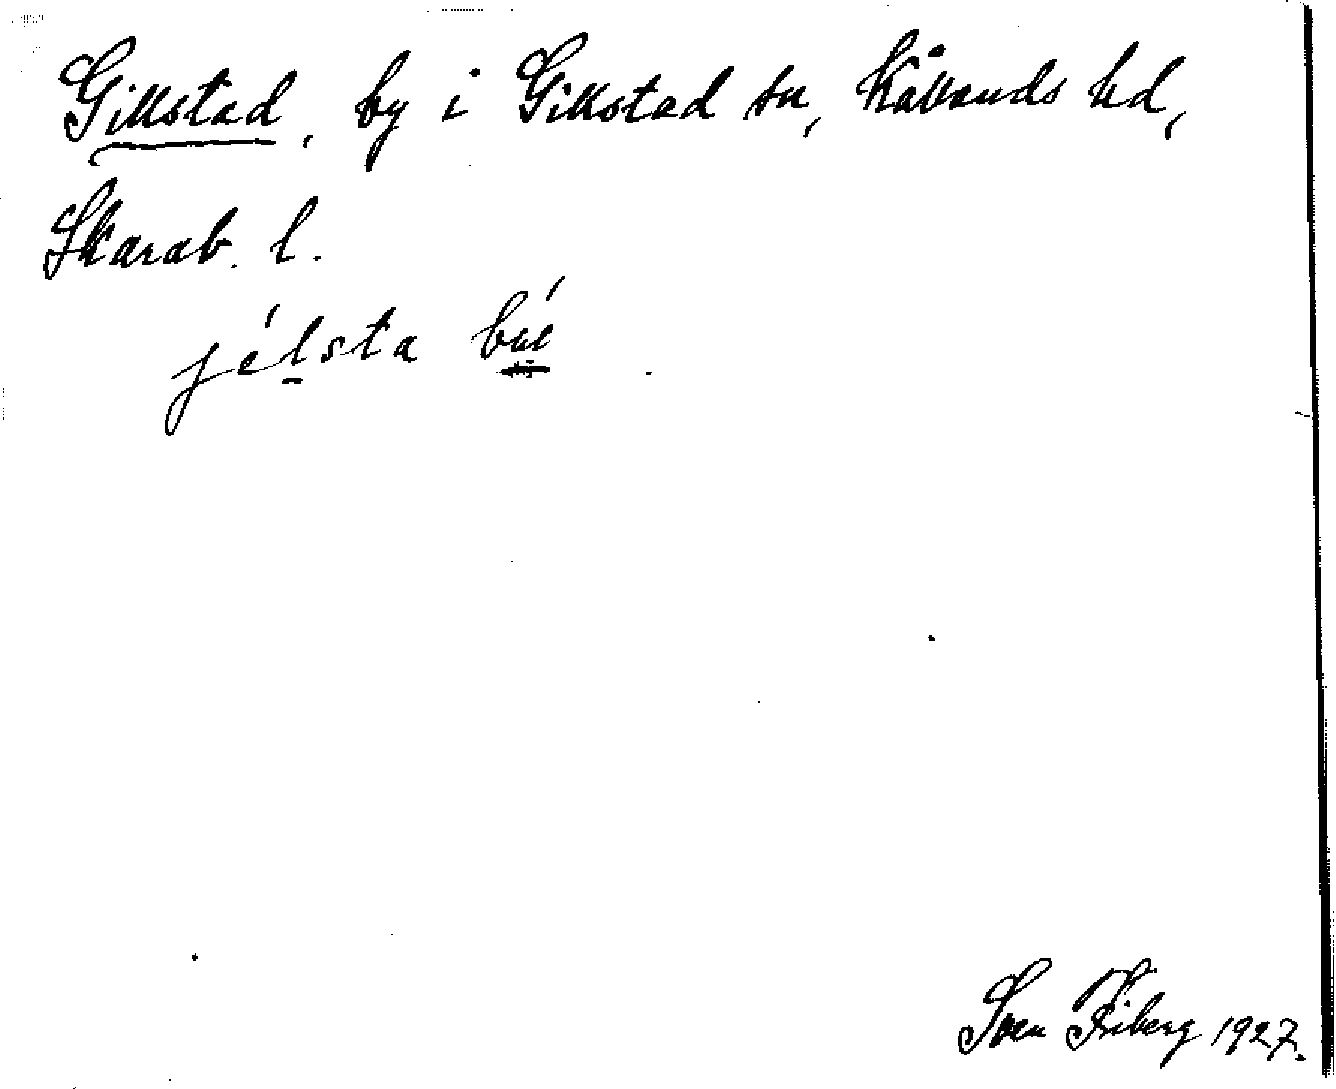 Gillstad, by i Gillstad sn, Kållands hd,
Skarab. l.
jélsta
Sven Friberg 1927.